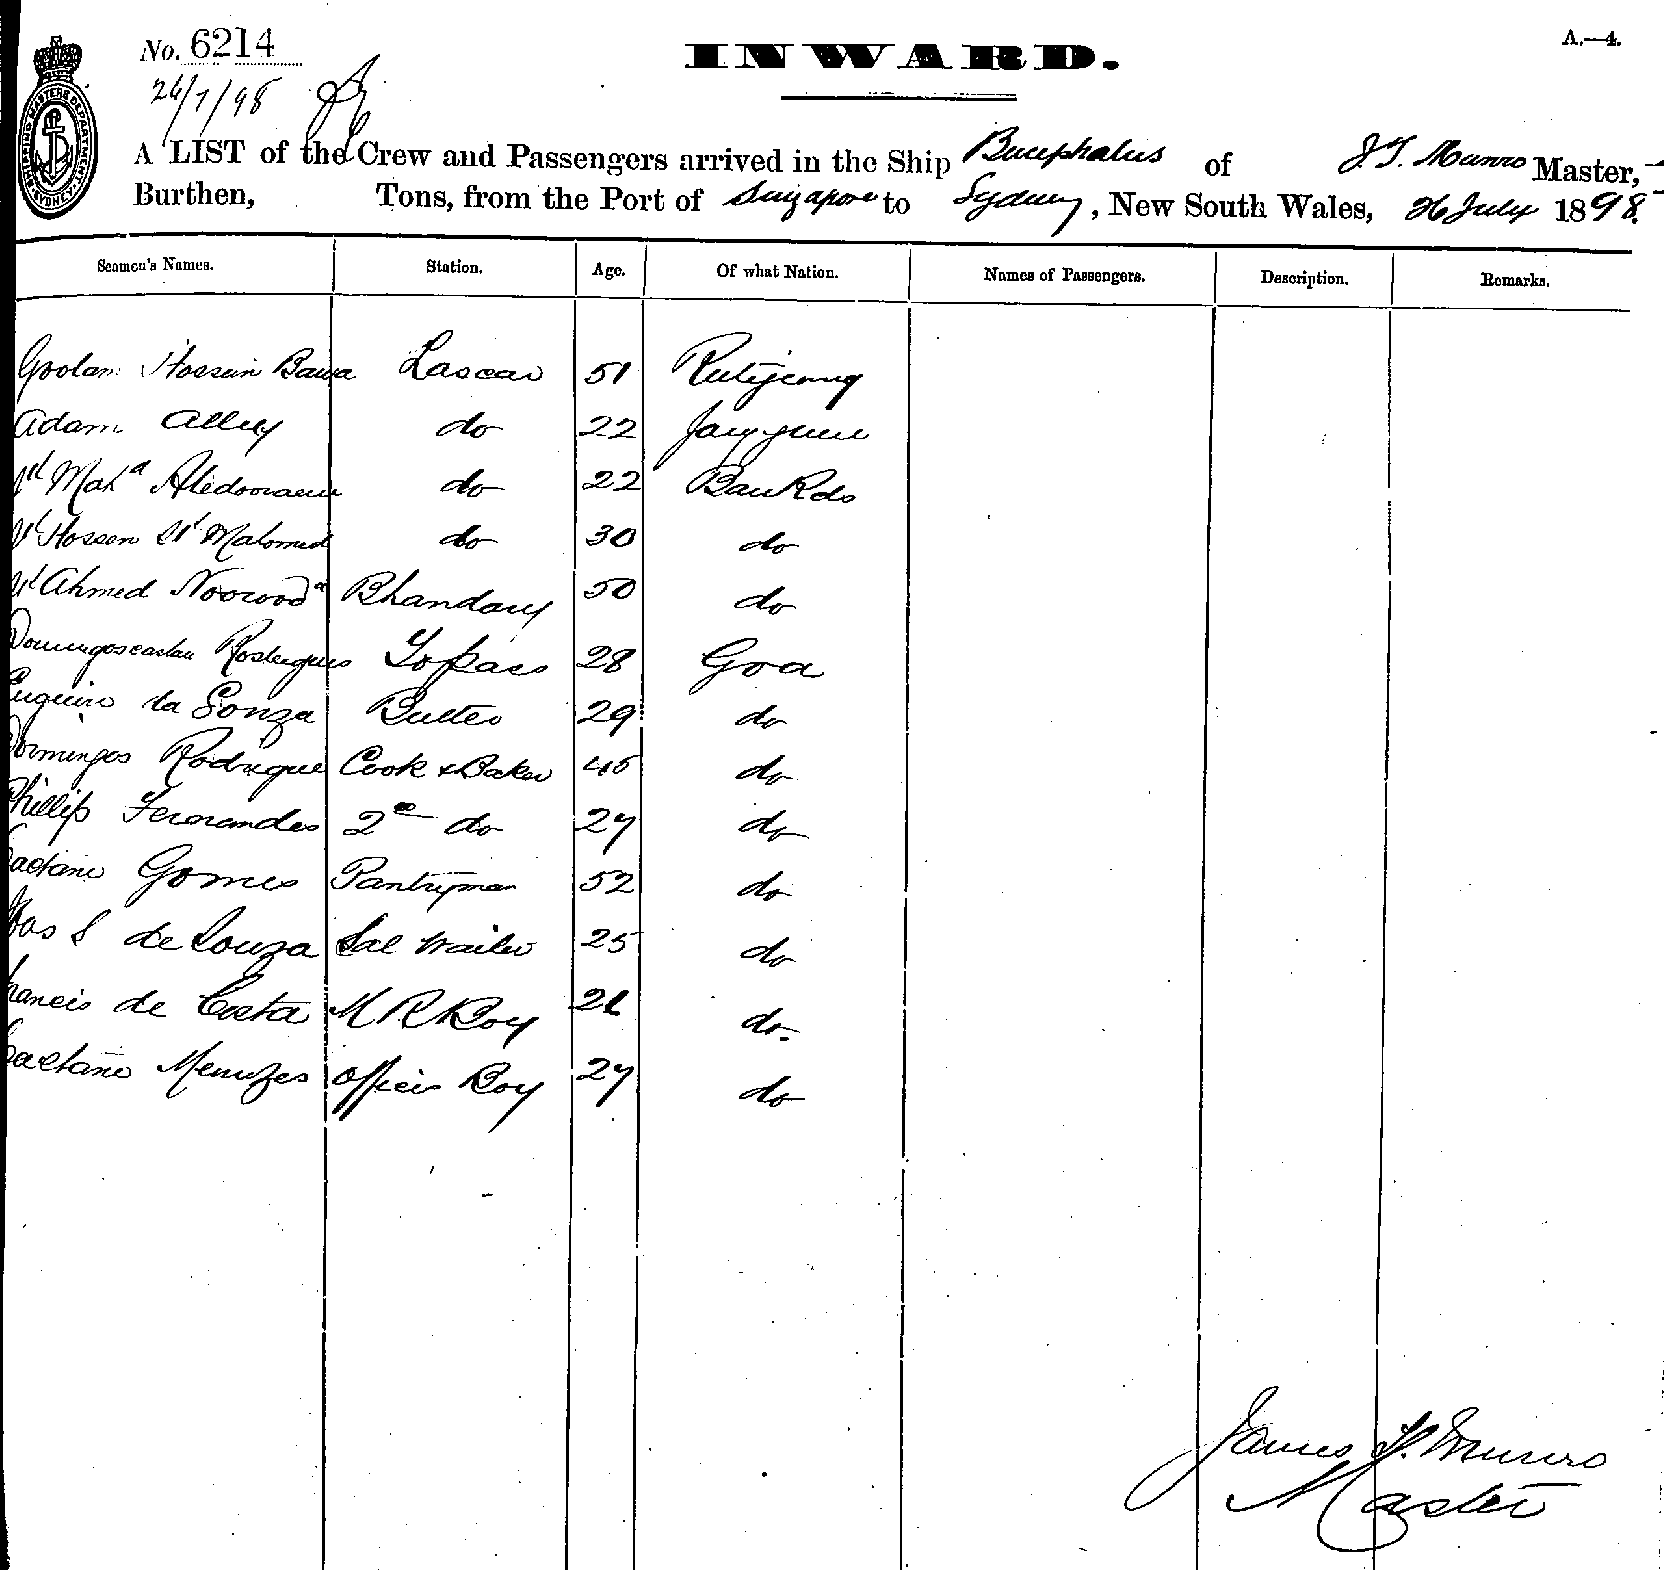 No. 6214
A.—4.
INWARD.
26/7/98
SHIPPING MASTERS DEPARTMENT SYDNEY
A LIST of the Crew and Passengers arrived in the Ship Bucephalus of J. T. Munro Master,
Burthen, Tons, from the Port of Singapore to Sydney, New South Wales, 26 July 1898.
Seamen's Names. Station. Age. Of what Nation. Names of Passengers. Description. Remarks.
Goolam Hossein Bawa Lascar 51
Adam Alley do 22
Mah^a 22
Hossen Mahomed do 30 do
Ahmed Bhandary 50 do
28 Goa
da Sonza Butler 29 do
Domingos Rodrigue Cook & Baker 45 do
Phillip Fernandes 2nd do 27 do
Caetano Gomes Pantryman 52 do
S de Souza Sal Waiter 25 do
Francis de Costa M R Boy do.
Caetano Menezes Officer Boy 27 do
James T. Munro
Master